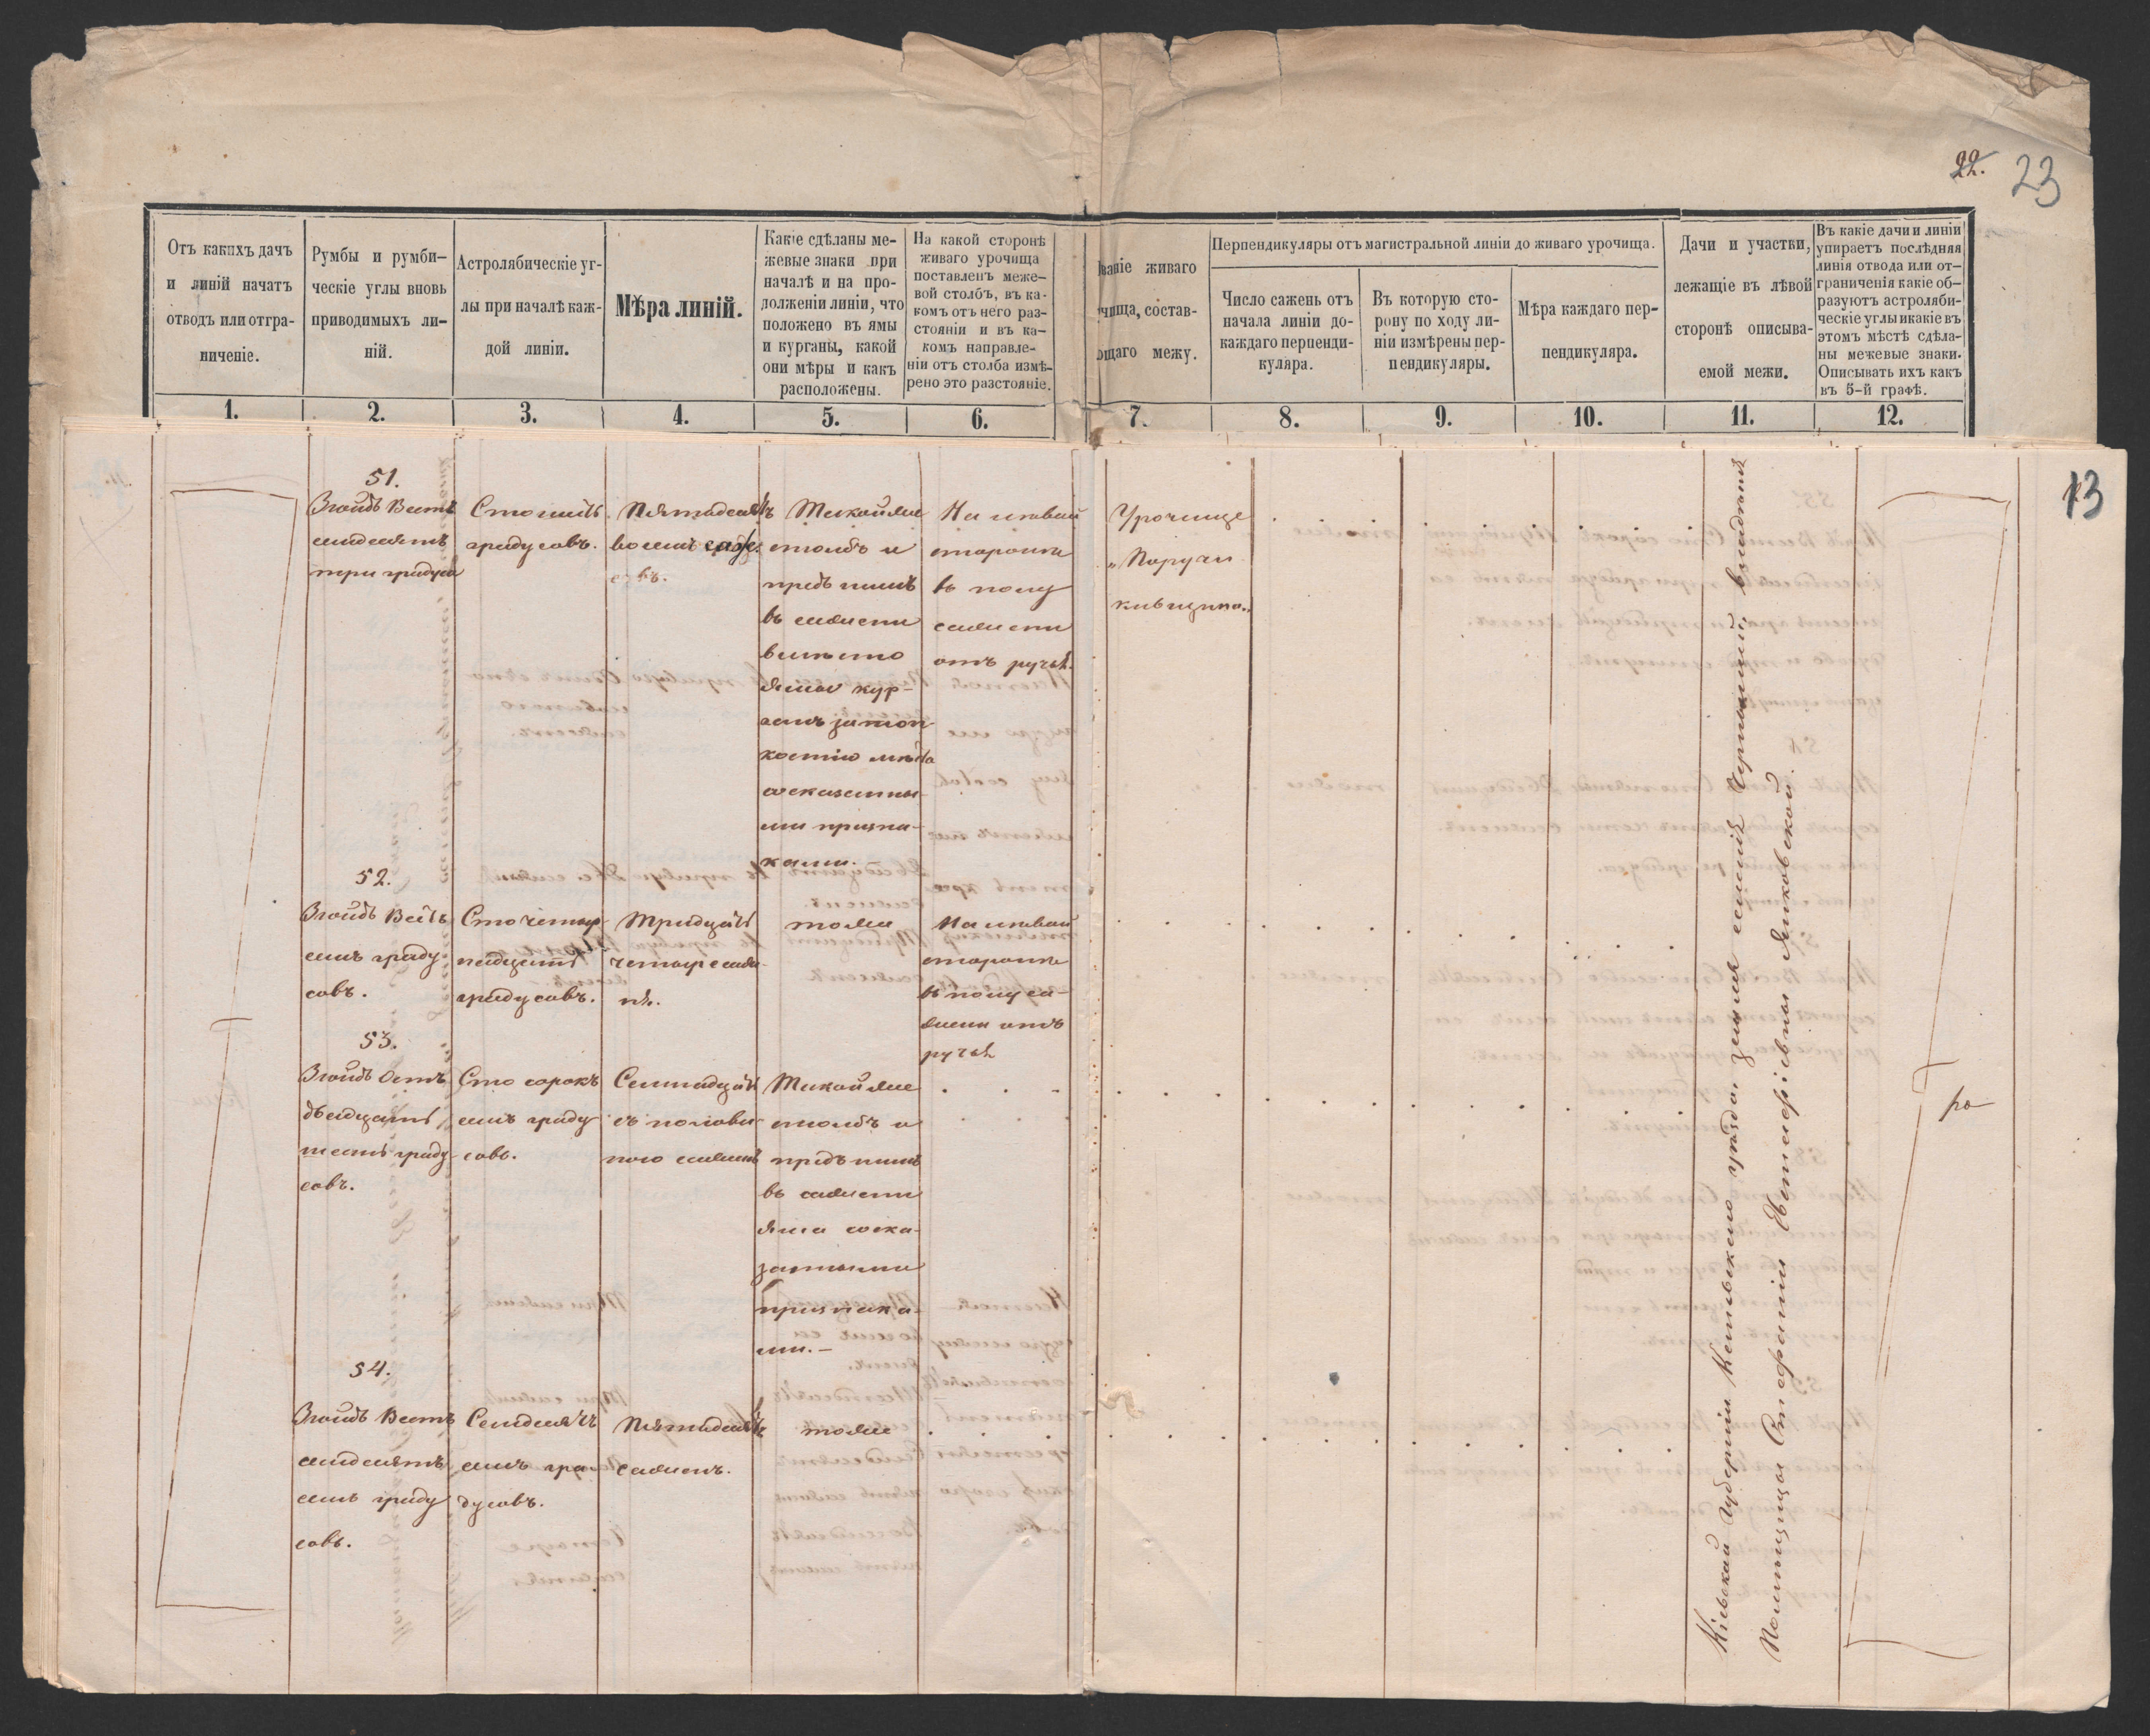 22. 23
Отъ какихъ дачъ
и линій начатъ
отводъ или отгра-
ниченіе.
Румбы и румби-
ческіе углы вновь
приводимыхъ ли-
ній.
Астролябическіе уг-
лы при началѣ каж-
дой линіи.
Мѣра линій.
Какіе сдѣланы ме-
жевые знаки при
началѣ и на про-
долженіи линіи, что
положено въ ямы
и курганы, какой
они мѣры и какъ
расположены.
На какой сторонѣ
живаго урочища
поставленъ меже-
вой столбъ, въ ка-
комъ отъ него раз-
стояніи и въ ка-
комъ направле-
ніи отъ столба измѣ-
рено это разстояніе.
ваніе живаго
чища, состав-
ющаго межу.
Перпендикуляры отъ магистральной линіи до живаго урочища.
Число сажень отъ
начала линіи до-
каждаго перпенди-
куляра.
Въ которую сто-
рону по ходу ли-
ніи измѣрены пер-
пендикуляры.
Мѣра каждаго пер-
пендикуляра.
Дачи и участки,
лежащіе въ лѣвой
сторонѣ описыва-
емой межи.
Въ какіе дачи и линіи
упираетъ послѣдняя
линія отвода или от-
граниченія какіе об-
разуютъ астроляби-
ческіе углы и какіе въ
этомъ мѣстѣ сдѣла-
ны межевые знаки.
Описывать ихъ какъ
въ 5-й графѣ.
1. 2. 3. 4. 5. 6. 7. 8. 9. 10. 11. 12.
13
51.
Зюйдъ Вестъ
семдесятъ
три градуса
Сто шесть
градусовъ.
Пятьдесятъ
восемь саж
енъ.
Такой же
столбъ и
предъ нимъ
въ сажени
вмѣсто
ямы кур-
ганъ за топ
костію мѣста
сосказанны-
ми призна-
ками.
На лѣвой
сторонѣ
въ полу
сажени
отъ ручья.
Урочище
„Поручи
ківщина"
52.
Зюйдъ Вестъ
семь граду
совъ.
Сто четыр
надцать
градусовъ.
Тридцать
четыре саже
нѣ.
тоже
На лѣвой
сторонѣ
въ полу са-
жени отъ
ручья
53.
Зюйдъ Остъ
двадцать
шесть граду
совъ.
Сто сорокъ
семь граду
совъ.
Семнадцать
съ полови
ною сажень
Такой же
столбъ и
предъ нимъ
въ сажени
яма соска-
занными
признака-
ми.—
54.
Зюйдъ Вестъ
семдесятъ
семь граду
совъ.
Семдесятъ
семь гра
дусовъ.
Пятьдесятъ
сажень.
тоже
Кіевской Губерніи Каневскаго уѣзда земля селенія владѣнія
Помѣщицы Стефаніи